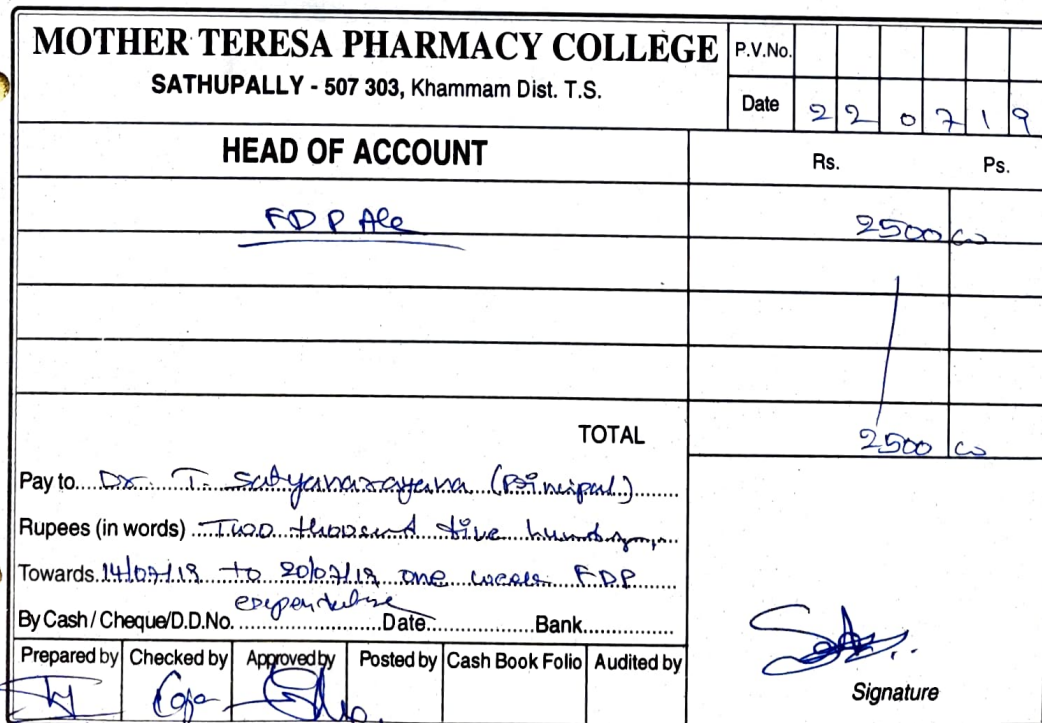 MOTHER TERESA PHARMACY COLLEGE
SATHUPALLY - 507 303, Khammam Dist. T.S.
P.V.No.
Date 2 2 0 7 1 9
HEAD OF ACCOUNT Rs. Ps.
FDP A/c 2500 00
TOTAL 2500 00
Pay to Dr. T. Satyanarayana (Principal)
Rupees (in words) Two thousand five hundred
Towards 14/07/19 to 20/07/19 one week FDP
expenditure
By Cash / Cheque/D.D.No. Date Bank
Prepared by Checked by Approved by Posted by Cash Book Folio Audited by
Signature